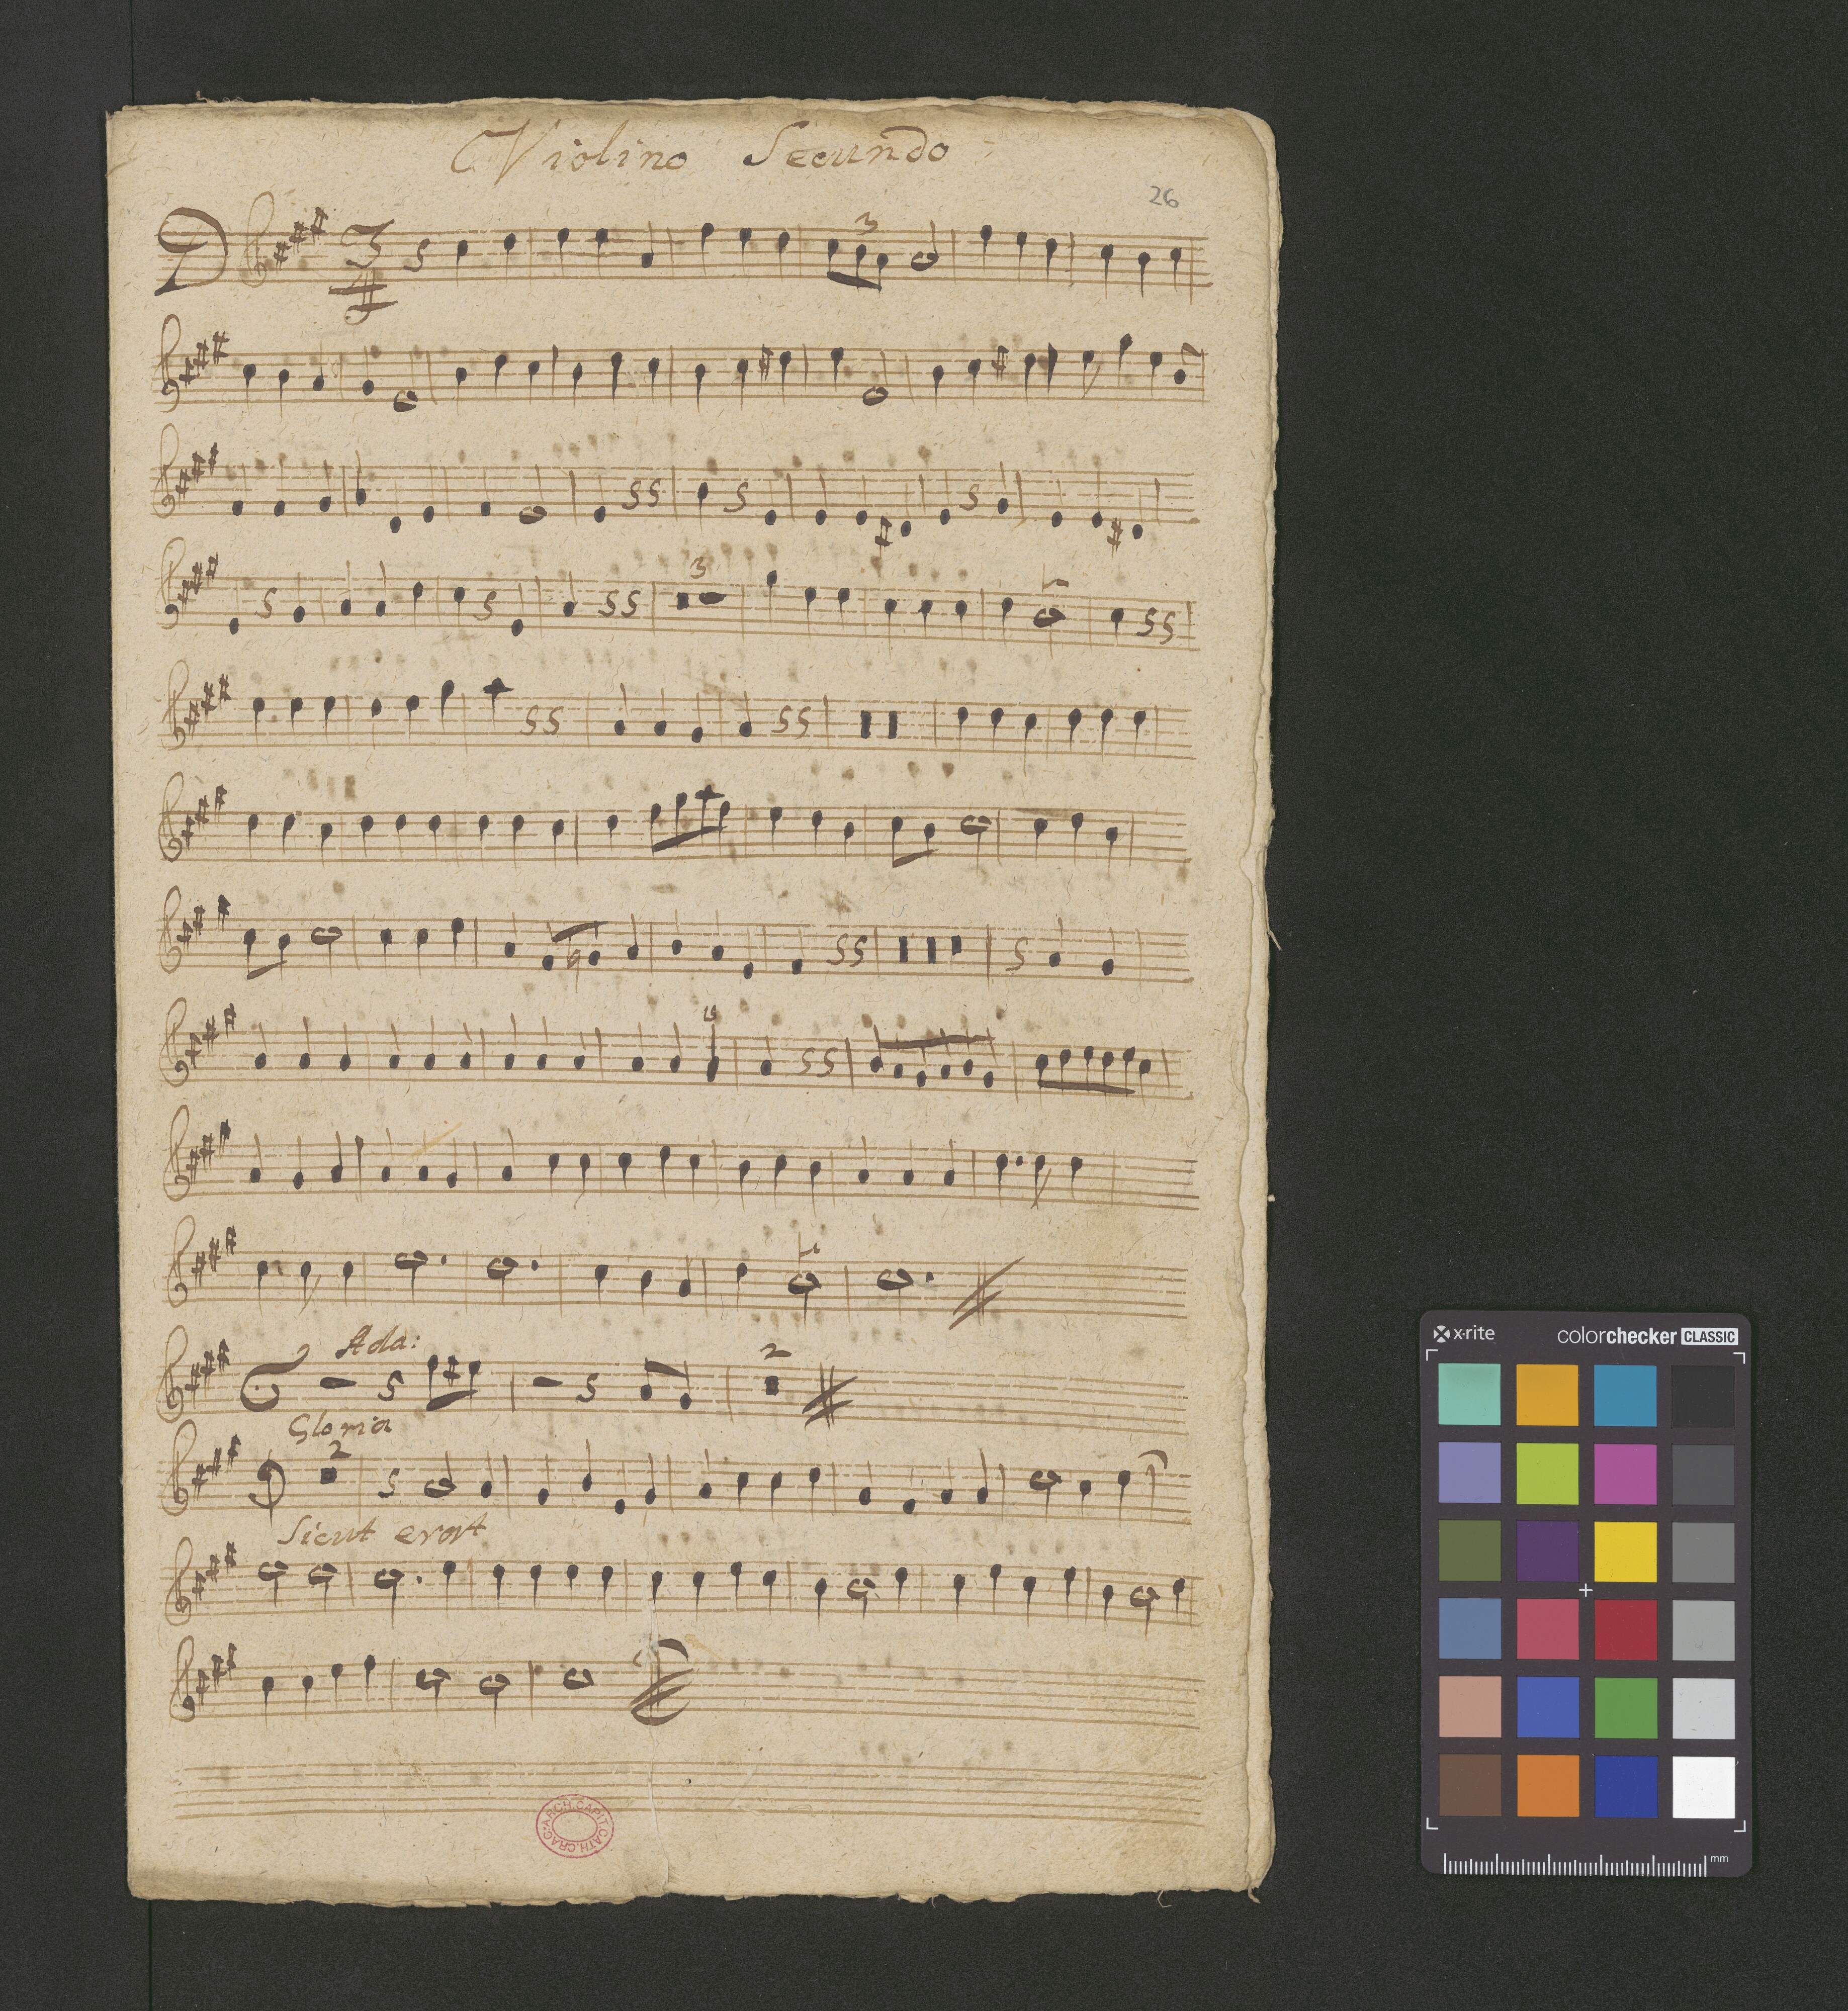 Violino Secundo
26
D
3
4
3
3
Ada:
2
Gloria
2
Sicut erat
ARCH.CAPIT.CATH.CRAC.
x·rite
colorchecker CLASSIC
mm